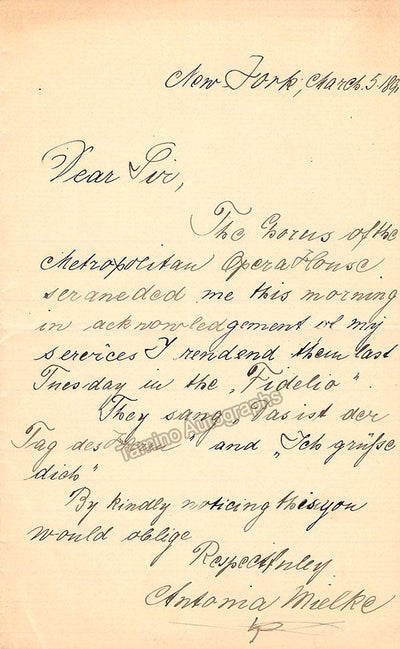 New-York, March. 5. 189
Dear Sir,
The Chorus of the
Metropolitan Opera House
seraneded me this morning
in acknowledgement of my
serevices I rendend them last
Tuesday in the „Fidelio“.
They sang „Das ist der
Tag des Herrn“ and „Ich grüße
dich“
By kindly noticing this you
would oblige
Respectfuley
Antonia Mielke
Tamino Autographs